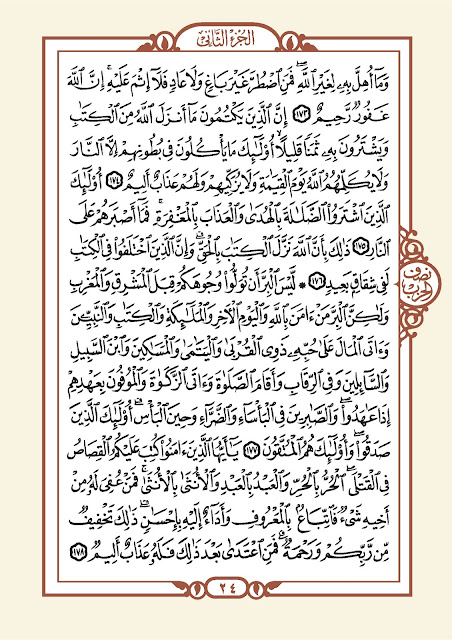 الجزء الثاني
وَمَآ أُهِلَّ بِهِۦ لِغَيْرِ ٱللَّهِۖ فَمَنِ ٱضْطُرَّ غَيْرَ بَاغٍ وَلَا عَادٍ فَلَآ إِثْمَ عَلَيْهِۚ إِنَّ ٱللَّهَ
غَفُورٌ رَّحِيمٌ ١٧٣ إِنَّ ٱلَّذِينَ يَكْتُمُونَ مَآ أَنزَلَ ٱللَّهُ مِنَ ٱلْكِتَٰبِ
وَيَشْتَرُونَ بِهِۦ ثَمَنًا قَلِيلًا أُو۟لَٰٓئِكَ مَا يَأْكُلُونَ فِى بُطُونِهِمْ إِلَّا ٱلنَّارَ
وَلَا يُكَلِّمُهُمُ ٱللَّهُ يَوْمَ ٱلْقِيَٰمَةِ وَلَا يُزَكِّيهِمْ وَلَهُمْ عَذَابٌ أَلِيمٌ ١٧٤ أُو۟لَٰٓئِكَ
ٱلَّذِينَ ٱشْتَرَوُا۟ ٱلضَّلَٰلَةَ بِٱلْهُدَىٰ وَٱلْعَذَابَ بِٱلْمَغْفِرَةِۚ فَمَآ أَصْبَرَهُمْ عَلَى
ٱلنَّارِ ١٧٥ ذَٰلِكَ بِأَنَّ ٱللَّهَ نَزَّلَ ٱلْكِتَٰبَ بِٱلْحَقِّۗ وَإِنَّ ٱلَّذِينَ ٱخْتَلَفُوا۟ فِى ٱلْكِتَٰبِ
لَفِى شِقَاقٍۭ بَعِيدٍ ١٧٦ * لَّيْسَ ٱلْبِرَّ أَن تُوَلُّوا۟ وُجُوهَكُمْ قِبَلَ ٱلْمَشْرِقِ وَٱلْمَغْرِبِ
نصف الحزب
وَلَٰكِنَّ ٱلْبِرَّ مَنْ ءَامَنَ بِٱللَّهِ وَٱلْيَوْمِ ٱلْءَاخِرِ وَٱلْمَلَٰٓئِكَةِ وَٱلْكِتَٰبِ وَٱلنَّبِيِّۦنَ
وَءَاتَى ٱلْمَالَ عَلَىٰ حُبِّهِۦ ذَوِى ٱلْقُرْبَىٰ وَٱلْيَتَٰمَىٰ وَٱلْمَسَٰكِينَ وَٱبْنَ ٱلسَّبِيلِ
وَٱلسَّآئِلِينَ وَفِى ٱلرِّقَابِ وَأَقَامَ ٱلصَّلَوٰةَ وَءَاتَى ٱلزَّكَوٰةَ وَٱلْمُوفُونَ بِعَهْدِهِمْ
إِذَا عَٰهَدُوا۟ۖ وَٱلصَّٰبِرِينَ فِى ٱلْبَأْسَآءِ وَٱلضَّرَّآءِ وَحِينَ ٱلْبَأْسِۗ أُو۟لَٰٓئِكَ ٱلَّذِينَ
صَدَقُوا۟ۖ وَأُو۟لَٰٓئِكَ هُمُ ٱلْمُتَّقُونَ ١٧٧ يَٰٓأَيُّهَا ٱلَّذِينَ ءَامَنُوا۟ كُتِبَ عَلَيْكُمُ ٱلْقِصَاصُ
فِى ٱلْقَتْلَىۖ ٱلْحُرُّ بِٱلْحُرِّ وَٱلْعَبْدُ بِٱلْعَبْدِ وَٱلْأُنثَىٰ بِٱلْأُنثَىٰۚ فَمَنْ عُفِىَ لَهُۥ مِنْ
أَخِيهِ شَىْءٌ فَٱتِّبَاعٌۢ بِٱلْمَعْرُوفِ وَأَدَآءٌ إِلَيْهِ بِإِحْسَٰنٍۗ ذَٰلِكَ تَخْفِيفٌ
مِّن رَّبِّكُمْ وَرَحْمَةٌۗ فَمَنِ ٱعْتَدَىٰ بَعْدَ ذَٰلِكَ فَلَهُۥ عَذَابٌ أَلِيمٌ ١٧٨
٢٤